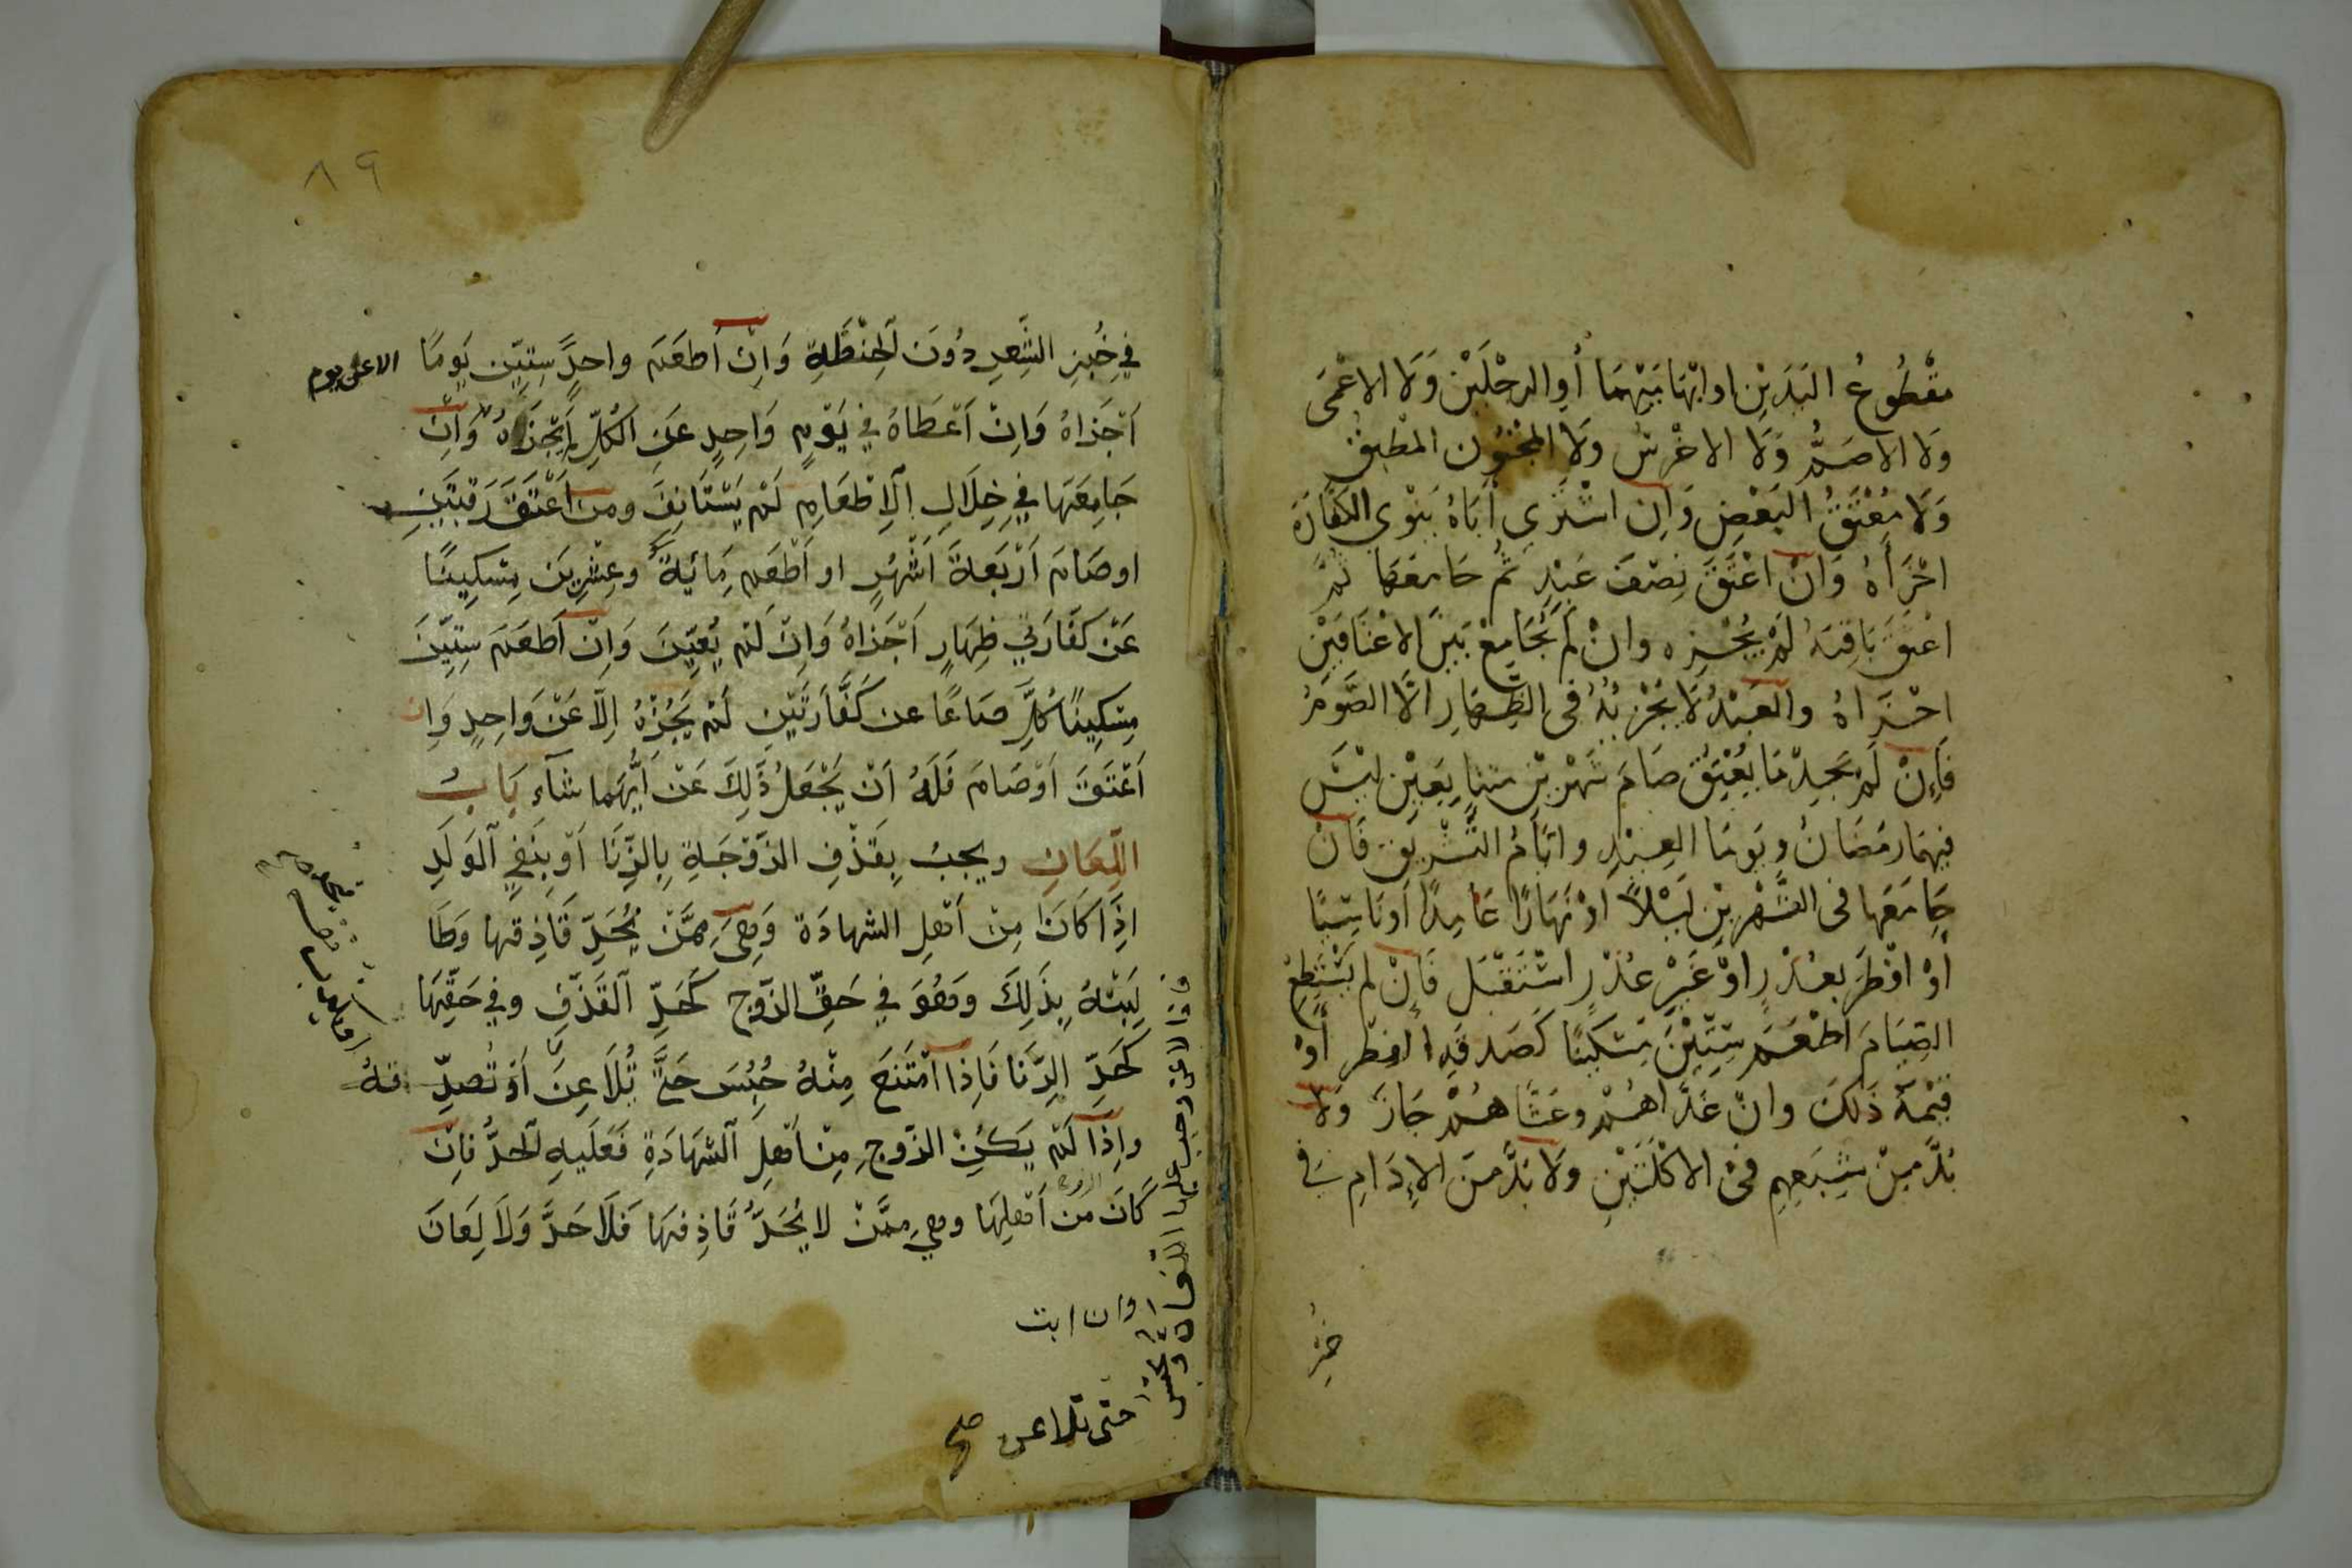 مقْطُوعُ اليَدَيْنِ او ابْهَامَيْهِمَا أوِ الرجْلَيْنِ وَلَا الاعْمَى
وَلا الاصَمُّ وَلَا الاخْرَسُ وَلا المجْنُون المطْبِق
وَلَا مُعْتَقُ البَعْضِ وَاِن اشْتَرى أبَاهُ يَنْوي الكَفَّارَةَ
اجْزَأهُ وَانْ اعْتَقَ نِصْفَ عَبْدٍ ثُم جَامَعَهَا ثُمَّ
اعْتَقَ بَاقِيَهُ لَمْ يُجْزِه وانْ لَمْ يُجَامِعْ بَيْنَ الاعْتَاقَيْنِ
اجْزَاهُ والعَبْدُ لَا يُجْزِئهُ فى الظِّهَارِ الَّا الصَّومُ
فَاِنْ لَمْ يَجِدْ مَا يُعْتِقُ صَامَ شَهْرَيْنِ مُتَتَابِعَيْنِ لَيْسَ
فيهمَا رمَضَانُ وَيَومَا العِيْدِ وايَّامُ التَّشْرِيقِ فَانْ
جَامَعَها فى الشَّهْرَيْنِ لَيْلاً اوْ نَهَارًا عَامِدًا أونَاسِيًا
أوْ افْطَرَ بعُذْرٍ اوْ غَيْرِ عُذْرٍ اسْتَقْبَل فَاِنْ لم يَسْتَطِعْ
الصِيَامَ اطْعَمَ سِتِّيْنَ مِسْكينًا كَصَدقَةِ الفِطْر أَوْ
قِيْمةَ ذلكَ وانْ غَدَّاهُمْ وعَشَّاهُمْ جَازَ وَلا
بُدَّ مِنْ شِبَعِهِم فىْ الاكْلَتَيْنِ وَلا بُدَّ منَ الاِدَامِ فى
خُبْزِ
٨٩
في خُبزِ الشَّعِيرِ دُونَ الحِنْطَةِ وَاِنْ أطعَمَ واحدًا سِتِيِّن يَومًا
الا عن يوم
اَجْزَاهُ وَاِنْ اَعْطَاهُ في يَوْمٍ وَاحِدٍ عَنِ الكُلِّ لم يُجْزَهُ وَاِنْ
جَامِعَهَا في خِلَالِ الاِطْعَامِ لَمْ يَسْتَانِفَ ومن اَعْتَقَ رَقبَتَيْنِ
او صَامَ اَرْبَعَةَ اَشْهُرٍ او اَطْعَم مِائَةً وعِشْرِينَ مِسكِينًا
عَنْ كَفَّارَتَي ظِهَارٍ اَجْزاهُ وَاِنْ لَمْ يُعَيِّنَ وَاِنْ اَطعَمَ سِتِيِّنَ
مِسكِينًا كُلَّ صَاعًا عن كَفَّارَتَيْنِ لَمْ يَجُزْهُ اِلَّا عَنْ وَاحِدٍ وَان
اَعْتَقَ اَوْصَامَ فَلَهُ اَنْ يَجْعَلَ ذَلِكَ عَنْ اَيُّهَما شآءَ بَابُ
اللّعَانِ ويجبُ بِقَذْفِ الزَّوْجَةِ بِالزِّنَا اَوْ بِنَفي الوَلَدِ
اِذَا كَانَا مِنْ اَهلِ الشهادَة وَهِيَ مِمَّنْ يُحَدّ قَاذِفها وَطَا
لِبَتْهُ بِذَلِكَ وَهُوَ في حَقِّ الزَّوج كَحَدِّ القَذْفِ وفي حَقِّهَا
كَحَدِّ الزِّنَا فَاِذَا اَمْتَنَعَ مِنْهُ حُبِسَ حَتَّى يُلَاعِنَ اَوْ تُصدِّقهُ
واِذَا لَمْ يَكُنْ الزَّوجِ مِنْ اَهلِ الشَهَادَةِ فَعَلَيهِ الحدُّ فاِنْ
كَانَ من اَهلِهَا وهي ممَّنْ لا يُحَدُّ قَاذِفهَا فَلَا حَدَّ وَلَا لِعَانَ
فاذا لاعن وجب عليها اللعان
وان ابت
حتى تلاعن صح